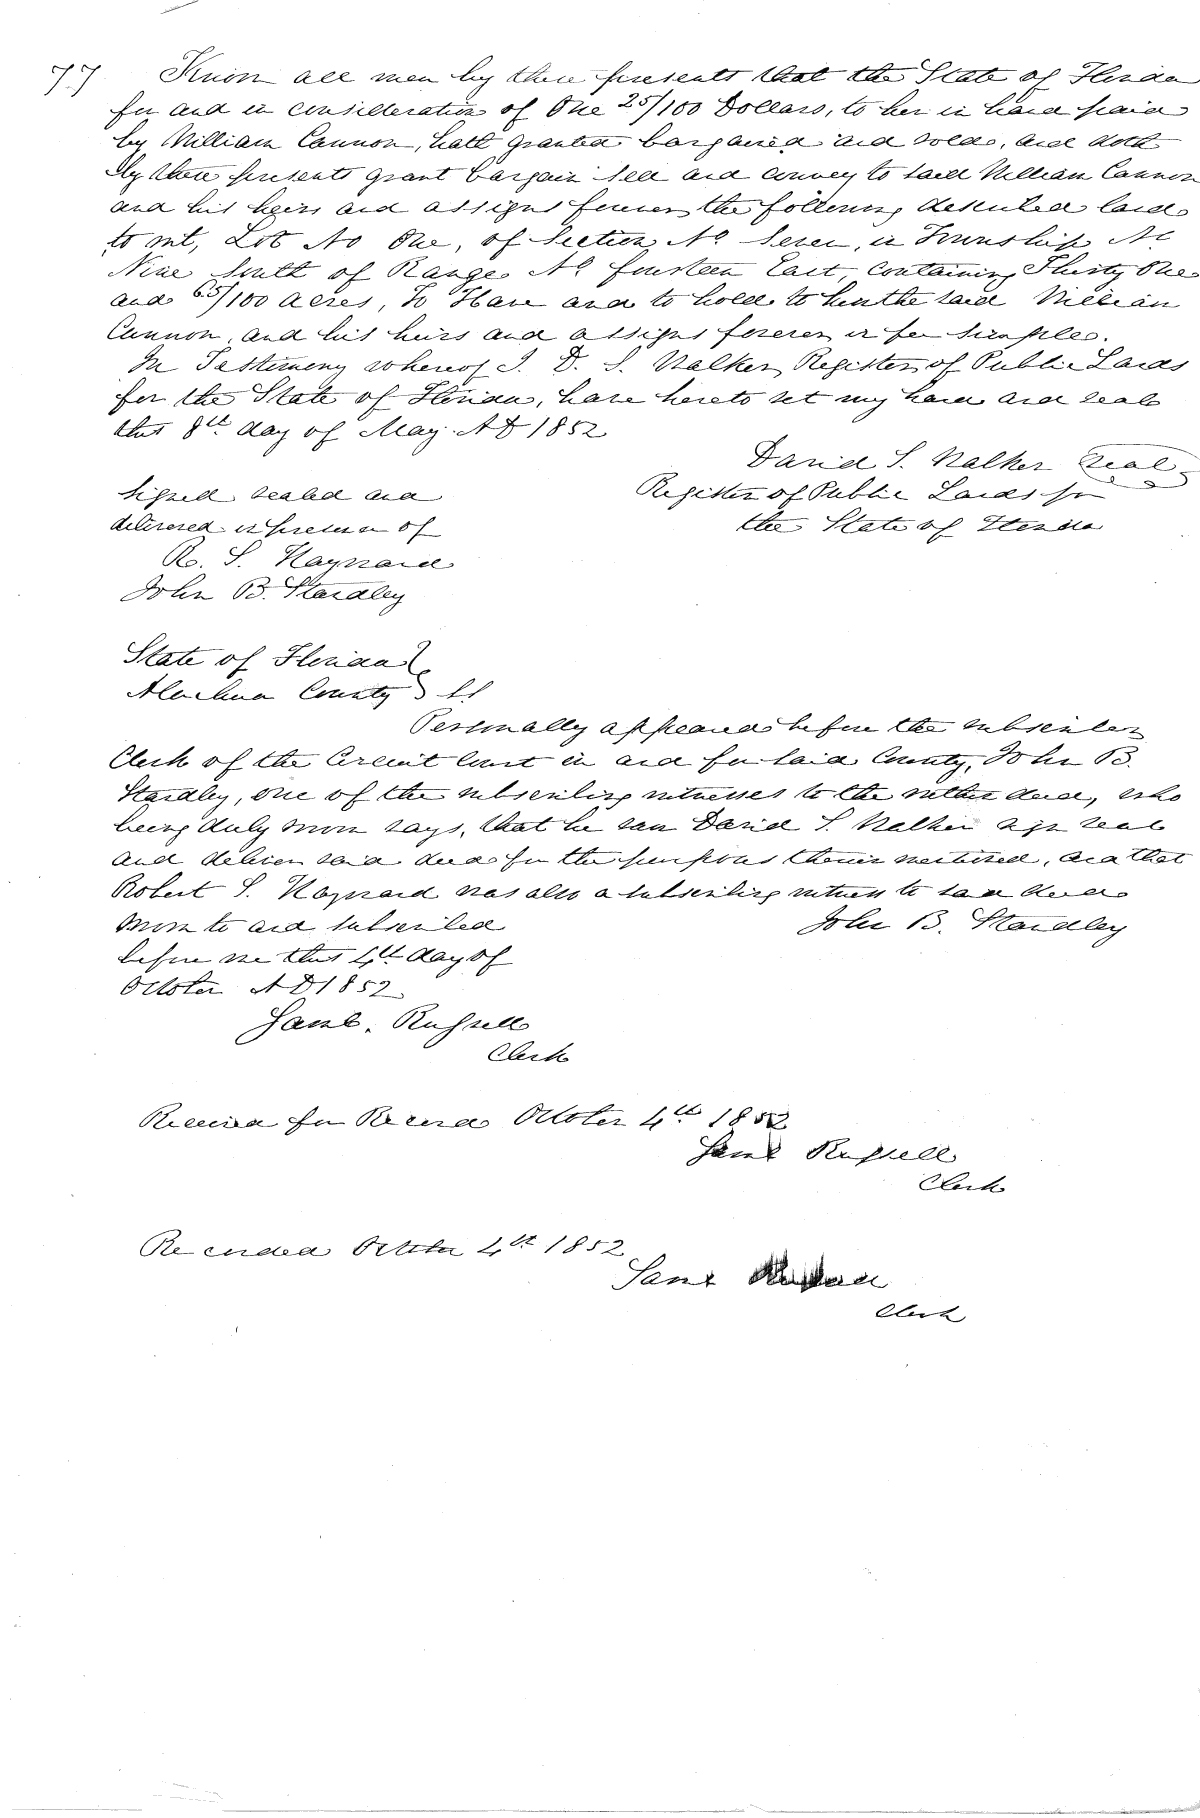 77 Know all men by these presents that the State of Florida
for and in consideration of One 25/100 Dollars, to her in hand paid
by William Cannon, hath granted bargained and sold, and doth
by these presents grant bargain sell and convey to said William Cannon
and his heirs and assigns forever, the following described land
to wit, Lot No One, of Section No Seven, in Township No
Nine South of Range No fourteen East, containing Thirty One
and 65/100 acres, To Have and to hold to him the said William
Cannon, and his heirs and assigns forever in fee simple.
In Testimony whereof I. D. S. Walker, Register of Public Lands
for the State of Florida, have hereto set my hand and seal
this 8th day of May AD 1852
David S. Walker Seal
Signed sealed and
Register of Public Lands for
delivered in presence of
the State of Florida
R. S. Haynard
John B. Standley
State of Florida
Alachua County } SS
Personally appeared before the subscriber
Clerk of the Circuit Court in and for said County, John B.
Standley, one of the subscribing witnesses to the within deed, who
being duly sworn says, that he saw David S. Walker sign seal
and deliver said deed for the purposes therein mentioned, and that
Robert S. Haynard was also a subscribing witness to said deed
Sworn to and subscribed
John B. Standley
before me this 4th day of
October AD 1852
Saml. Russell
Clerk
Received for Record October 4th 1852
Saml Russell
Clerk
Recorded October 4th 1852
Saml Russell
Clerk